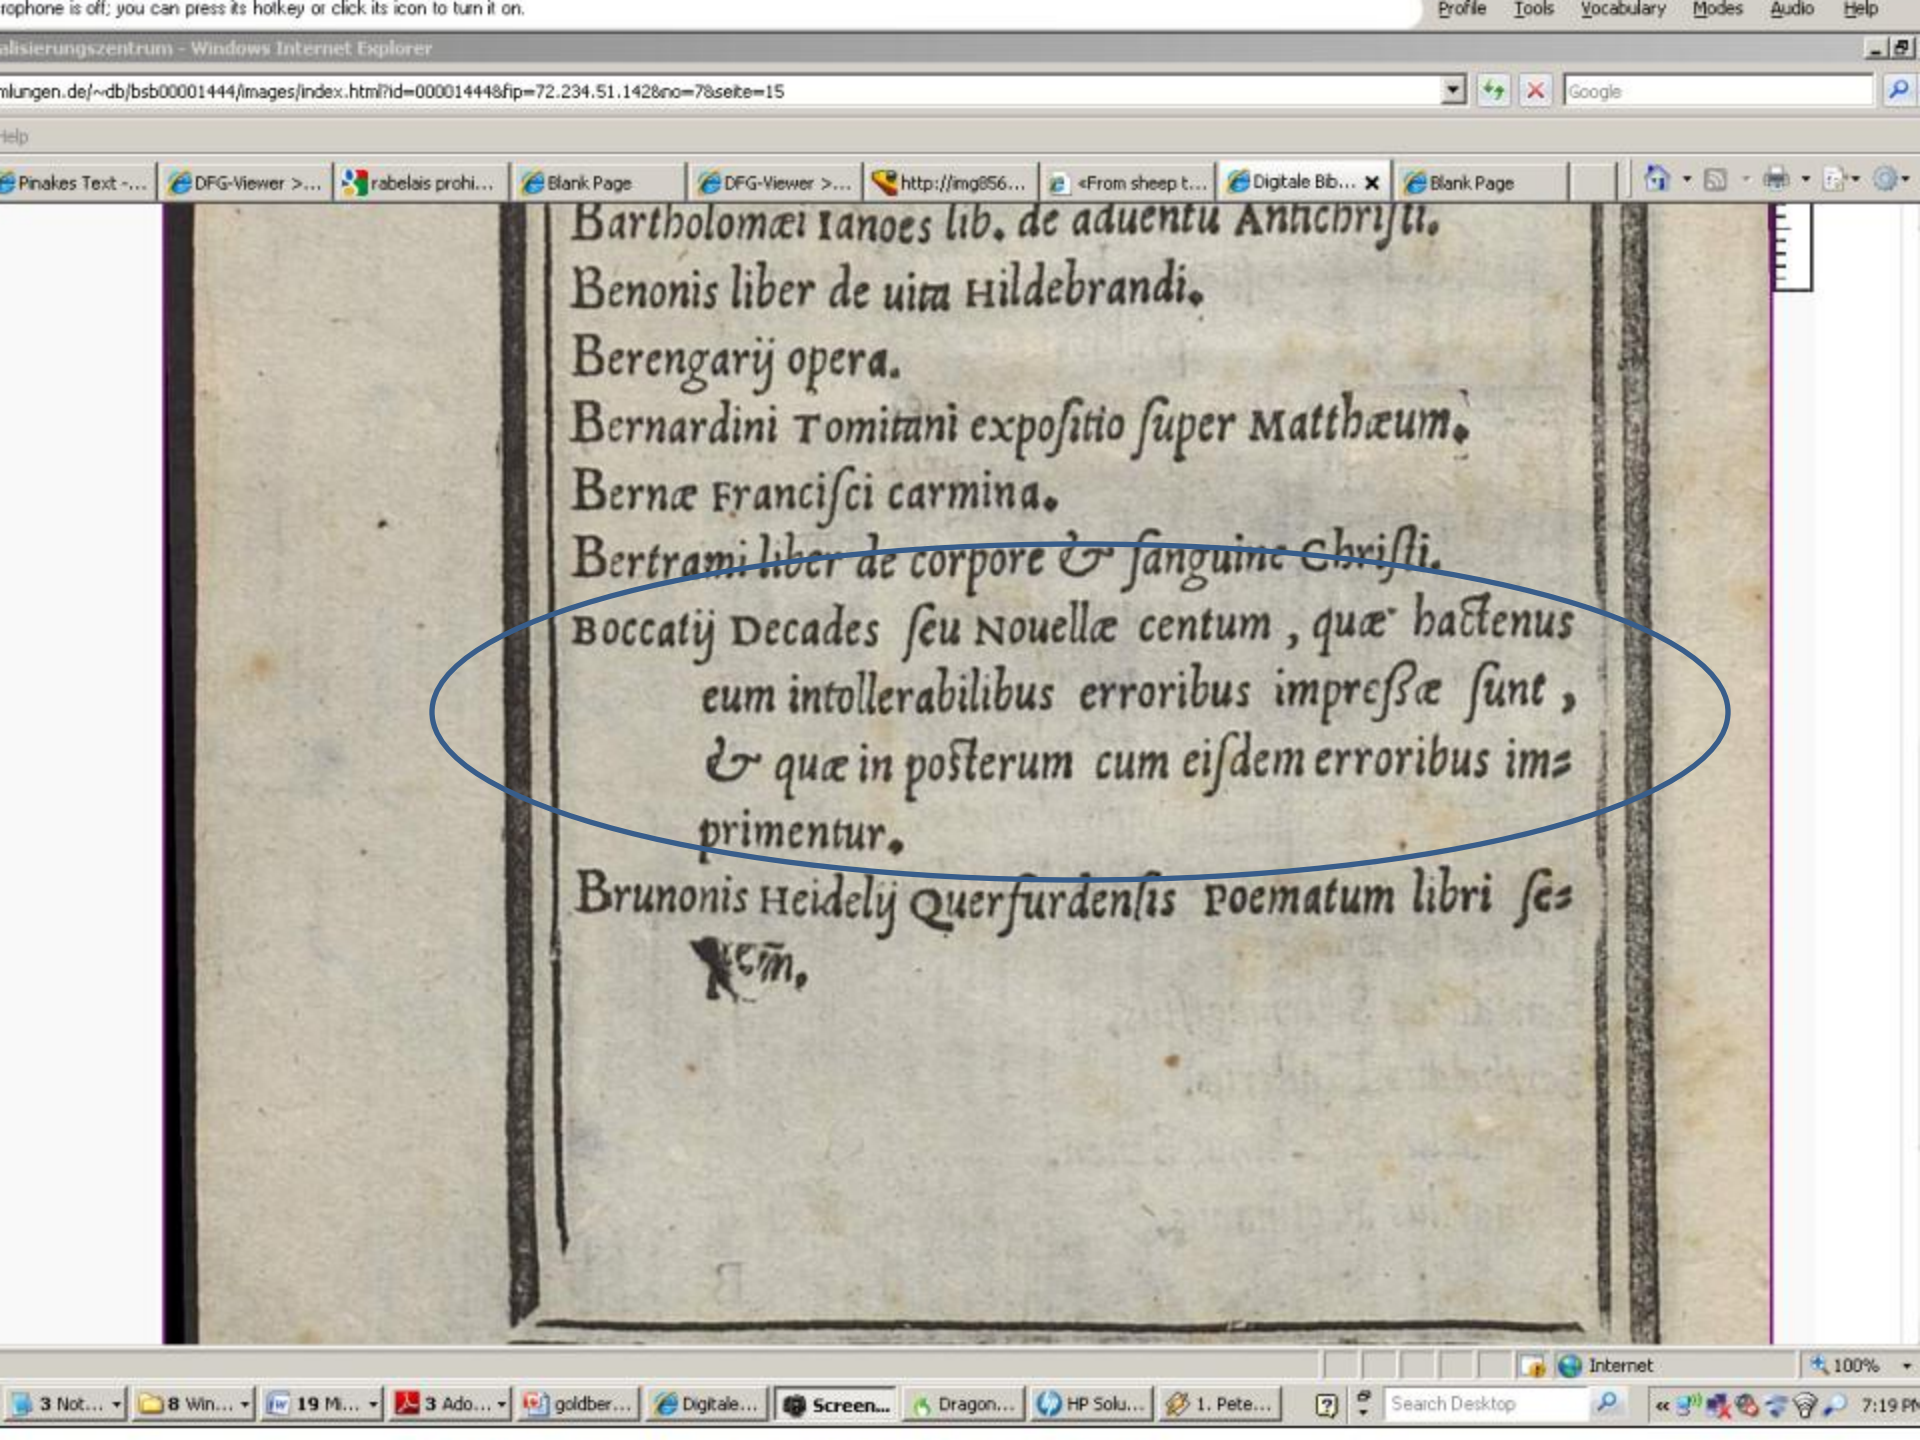 rophone is off; you can press its hotkey or click its icon to turn it on.
Profile Tools Vocabulary Modes Audio Help
alisierungszentrum - Windows Internet Explorer
mlungen.de/~db/bsb00001444/images/index.html?id=00001444&fip=72.234.51.142&no=7&seite=15
Google
Help
Pinakes Text -... DFG-Viewer >... rabelais prohi... Blank Page DFG-Viewer >... http://img856... «From sheep t... Digitale Bib... Blank Page
Bartholomæi Ianoes lib. de aduentu Antichriſti.
Benonis liber de uita Hildebrandi.
Berengarij opera.
Bernardini Tomitani expoſitio ſuper Matthæum.
Bernæ Franciſci carmina.
Bertrami liber de corpore & ſanguine Chriſti.
Boccatij Decades ſeu Nouellæ centum , quæ hactenus
eum intollerabilibus erroribus impreſſæ ſunt ,
& quæ in poſterum cum eiſdem erroribus im=
primentur.
Brunonis Heidelij Querfurdenſis Poematum libri ſe=
Internet 100%
3 Not... 8 Win... 19 Mi... 3 Ado... goldber... Digitale... Screen... Dragon... HP Solu... 1. Pete... Search Desktop « 7:19 PM